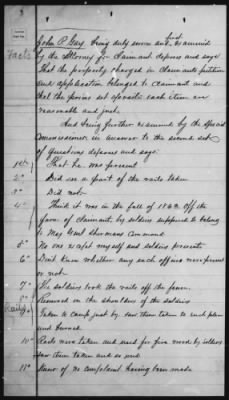 John P Guy, being duly sworn and first examined
Facts by the Attorney for Claimant deposes and says
That the property charged in claimants petition
and application belonged to claimant and
that the prices set opposite each item are
reasonable and just.
And being further examined by the Special
Commissioner in answer to the second set
of Questions deposes and says:
1st That he was present
2d Did see a part of the rails taken
3d Did not
4th Think it was in the fall of 1863 Off the
farm of claimant, by soldiers supposed to belong
to Maj Genl Shermans command
5th No one except myself and soldiers present
6th Dont know whether any such officers were present
or not
7th The soldiers took the rails off the fence.
8th Removed on the shoulders of the soldiers
Rails Taken to camp just by saw them taken to such place
and burned
10th Rails were taken and used for fire wood by soldiers
saw them taken and so used
11th Knew of no complaint having been made